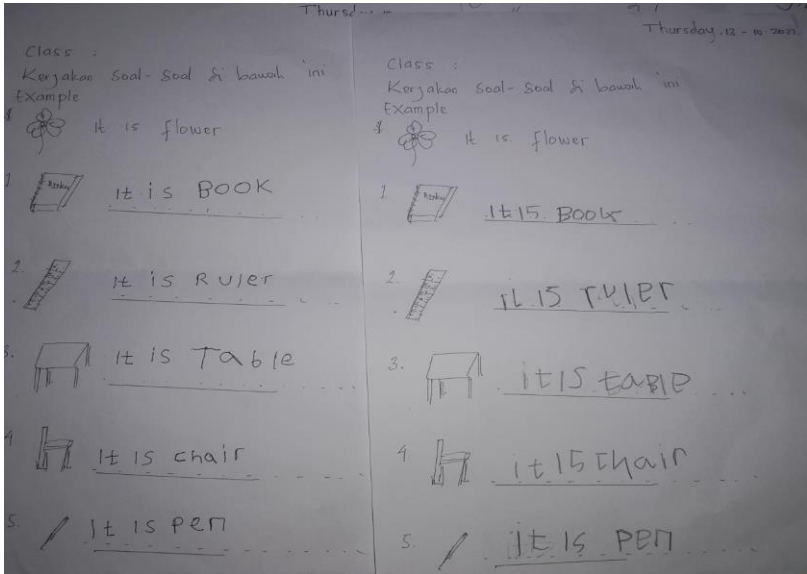 Thursd
Class :
Kerjakan Soal-Soal di bawah ini
Example
It is flower
1. It is BOOK
2. It is Ruler
3. It is Table
4 It is chair
5. It is pen
Thursday.
Class :
Kerjakan Soal-Soal di bawah ini
Example
It is flower
1. It is Book
2. it is ruler
3. it is table
4 it is chair
5. it is pen